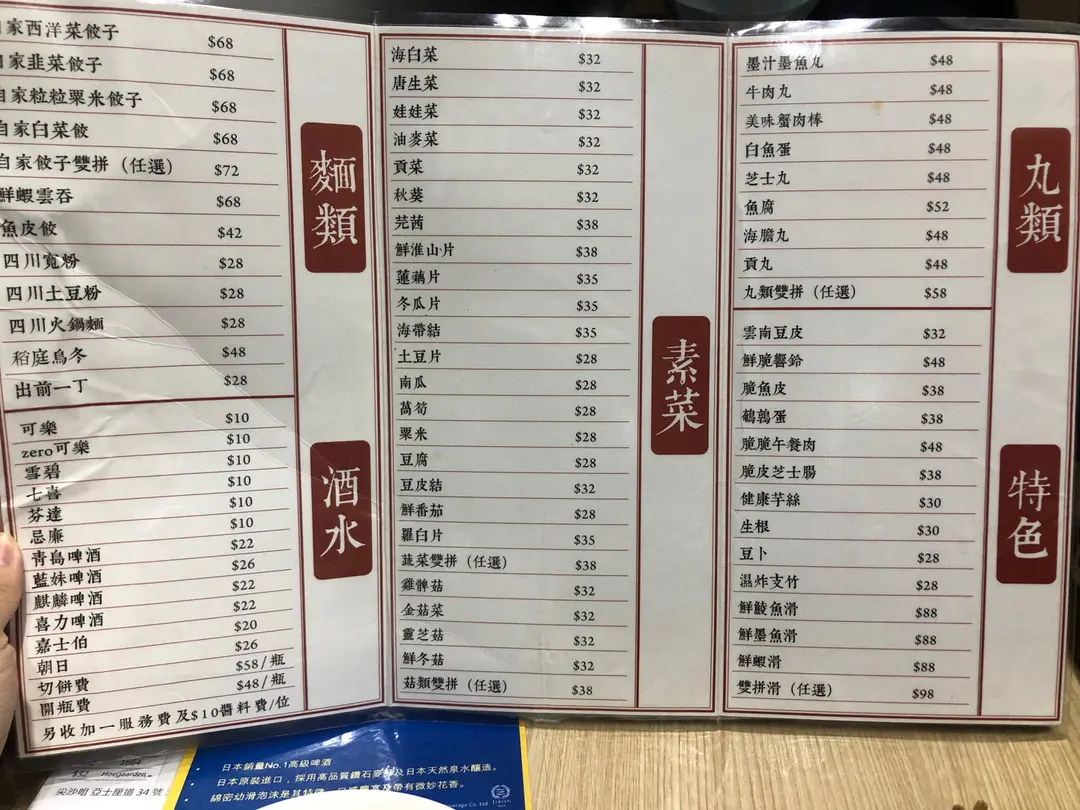 自家西洋菜餃子 $68
自家韭菜餃子 $68
自家粒粒粟米餃子 $68
自家白菜餃 $68
自家餃子雙拼（任選） $72
鮮蝦雲吞 $68
魚皮餃 $42
四川寬粉 $28
四川土豆粉 $28
四川火鍋麵 $28
稻庭烏冬 $48
出前一丁 $28
麵類
可樂 $10
zero可樂 $10
雪碧 $10
七喜 $10
芬達 $10
忌廉 $10
青島啤酒 $22
藍妹啤酒 $26
麒麟啤酒 $22
喜力啤酒 $22
嘉士伯 $20
朝日 $26
切餅費 $58/瓶
開瓶費 $48/瓶
另收加一服務費及$10醬料費/位
酒水
海白菜 $32
唐生菜 $32
娃娃菜 $32
油麥菜 $32
貢菜 $32
秋葵 $32
芫茜 $38
鮮淮山片 $38
蓮藕片 $35
冬瓜片 $35
海帶結 $35
土豆片 $28
南瓜 $28
萵筍 $28
粟米 $28
豆腐 $28
豆皮結 $32
鮮番茄 $28
羅白片 $35
蔬菜雙拼（任選） $38
雞髀菇 $32
金菇菜 $32
靈芝菇 $32
鮮冬菇 $32
菇類雙拼（任選） $38
素菜
墨汁墨魚丸 $48
牛肉丸 $48
美味蟹肉棒 $48
白魚蛋 $48
芝士丸 $48
魚腐 $52
海膽丸 $48
貢丸 $48
丸類雙拼（任選） $58
丸類
雲南豆皮 $32
鮮脆響鈴 $48
脆魚皮 $38
鵪鶉蛋 $38
脆脆午餐肉 $48
脆皮芝士腸 $38
健康芋絲 $30
生根 $30
豆卜 $28
濕炸支竹 $28
鮮鯪魚滑 $88
鮮墨魚滑 $88
鮮蝦滑 $88
雙拼滑（任選） $98
特色
1664
$32 Hoegaarden
尖沙咀 亞士厘道 34 號
日本銷量No.1高級啤酒
日本原裝進口，採用高品質鑽石麥芽及日本天然泉水釀造。
綿密幼滑泡沫是其特徵，口感豐富及帶有微妙花香。